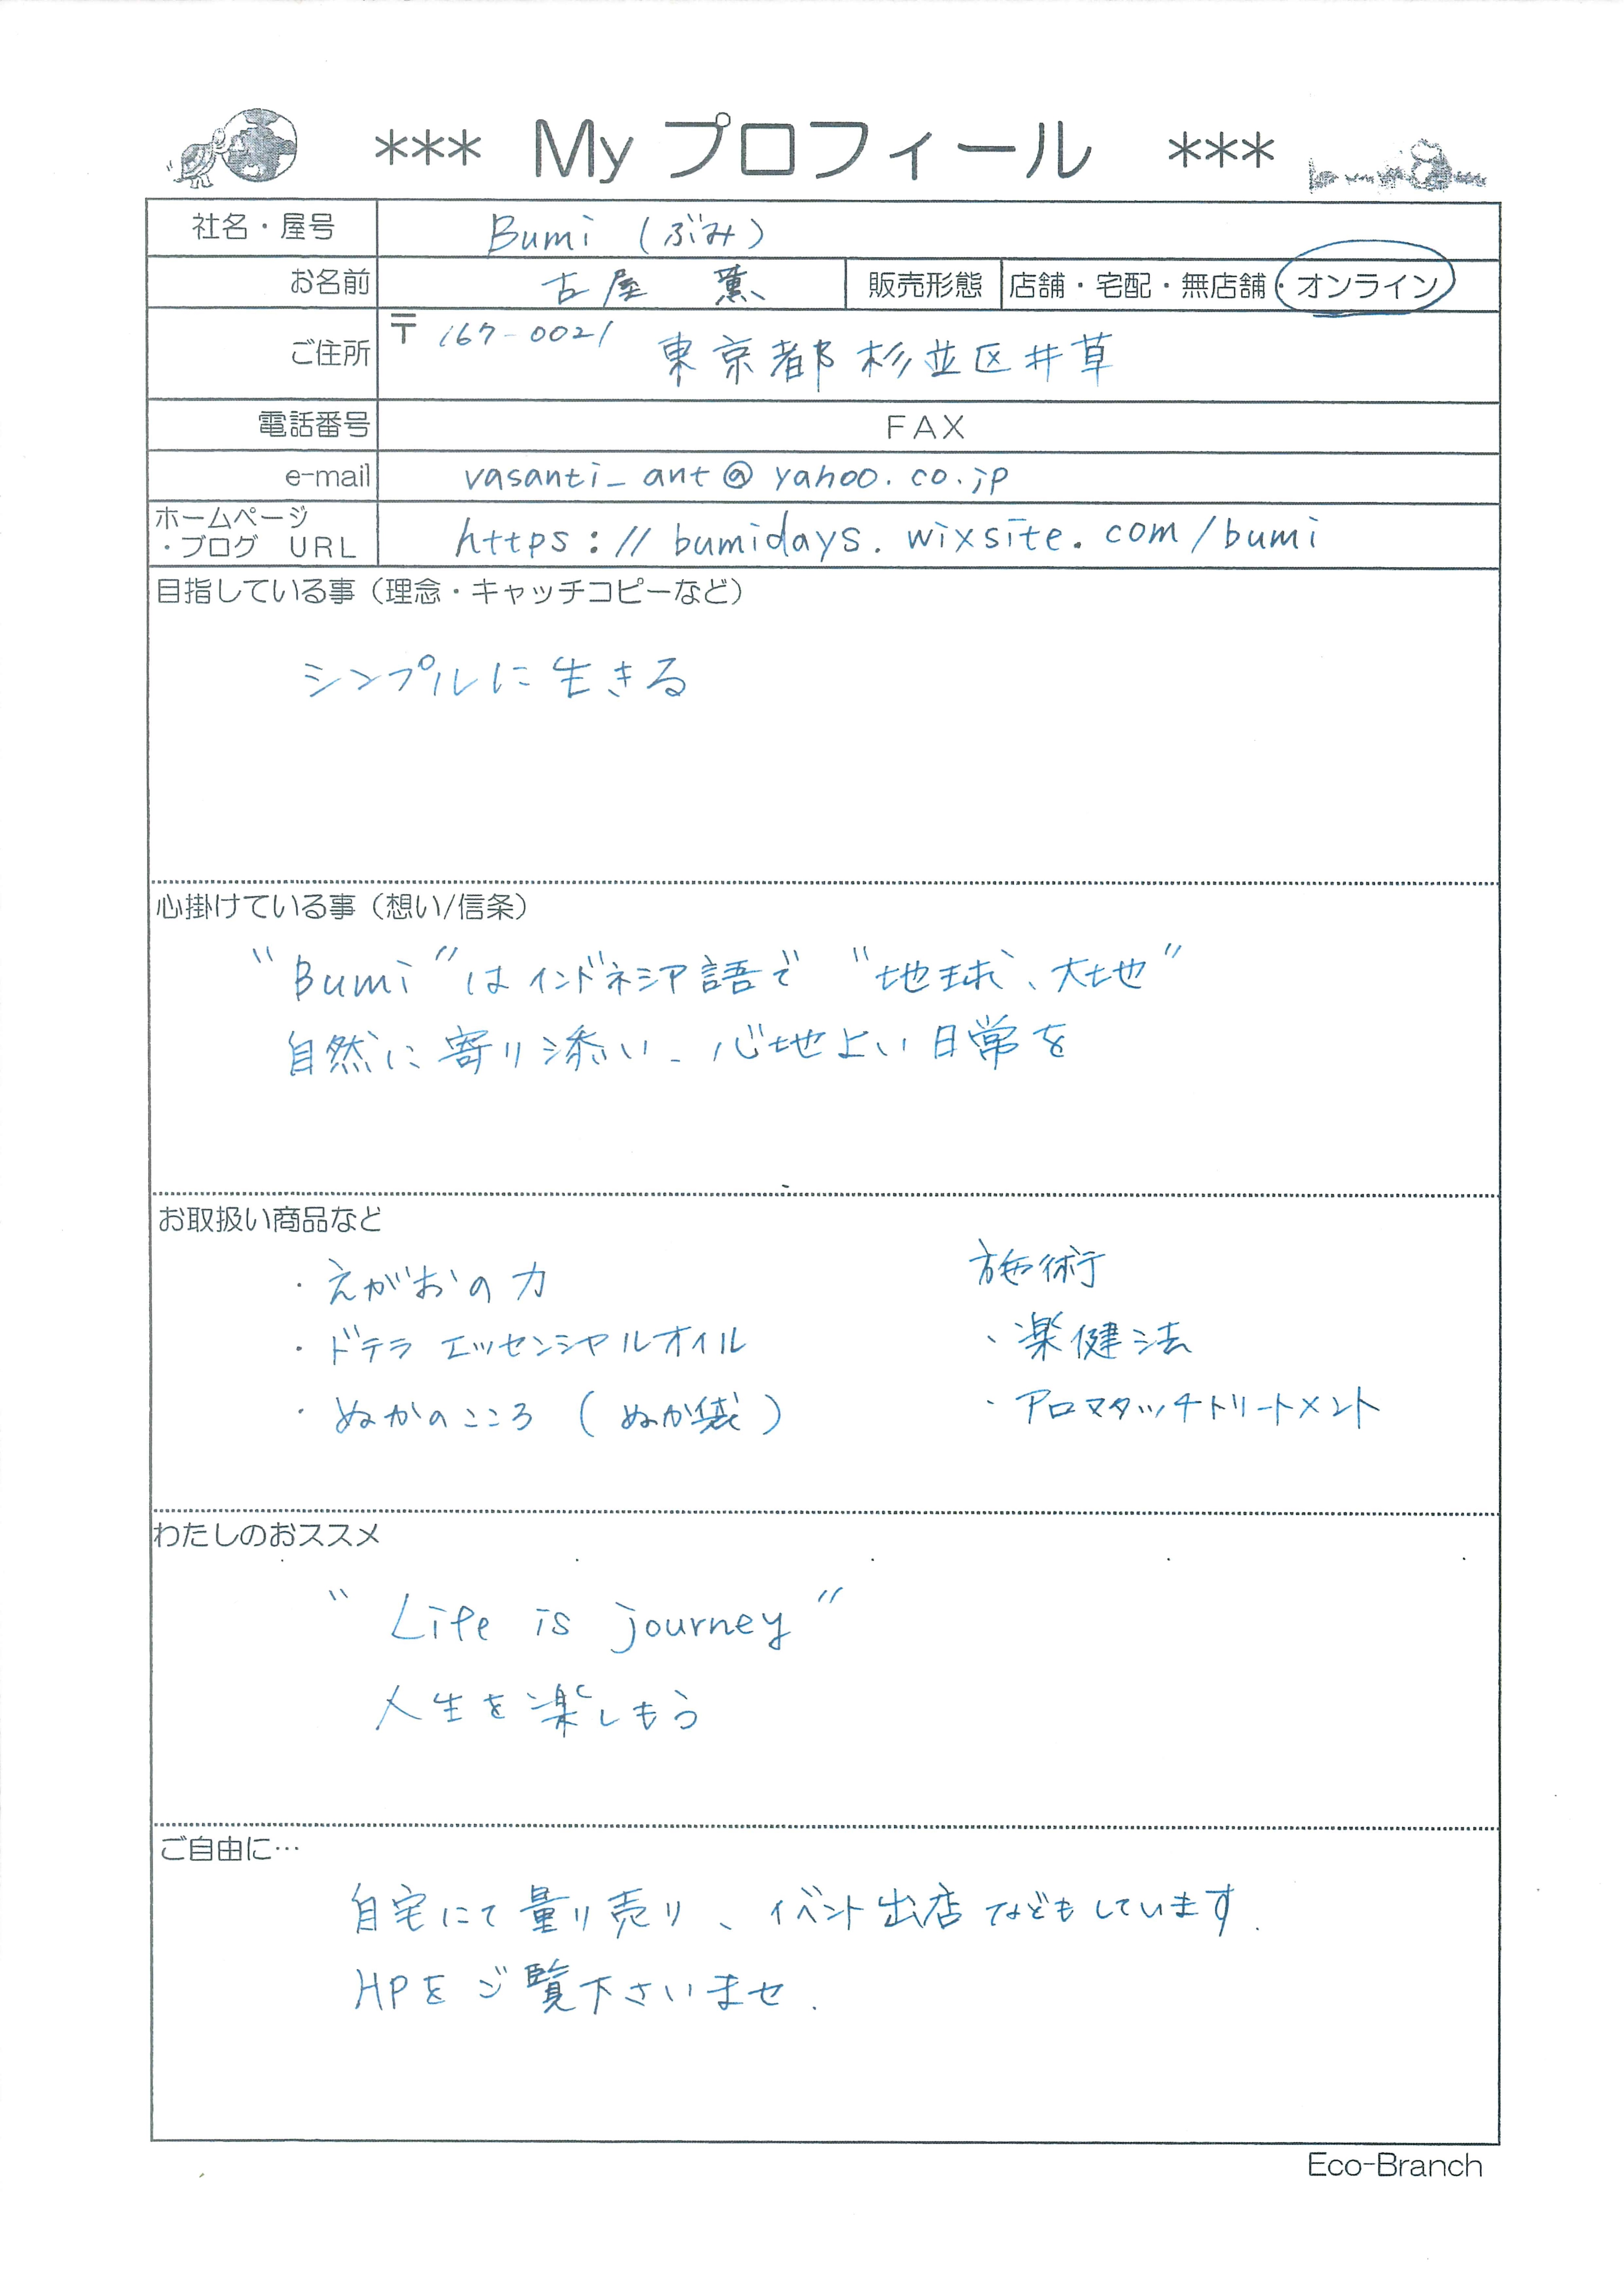 *** My プロフィール ***
社名・屋号 Bumi (ぶみ)
お名前 古屋 薫 販売形態 店舗・宅配・無店舗・オンライン
ご住所 〒 167-0021 東京都杉並区井草
電話番号 FAX
e-mail vasanti_ant@yahoo.co.jp
ホームページ
・ブログ URL https://bumidays.wixsite.com/bumi
目指している事（理念・キャッチコピーなど）
シンプルに生きる
心掛けている事（想い/信条）
"Bumi"はインドネシア語で "地球、大地"
自然に寄り添い、心地よい日常を
お取扱い商品など
・えがおの力
・ドテラ エッセンシャルオイル
・ぬかのこころ (ぬか袋)
施術
・楽健法
・アロマタッチトリートメント
わたしのおススメ
"Life is journey"
人生を楽しもう
ご自由に…
自宅にて量り売り、イベント出店などもしています.
HPをご覧下さいませ.
Eco-Branch